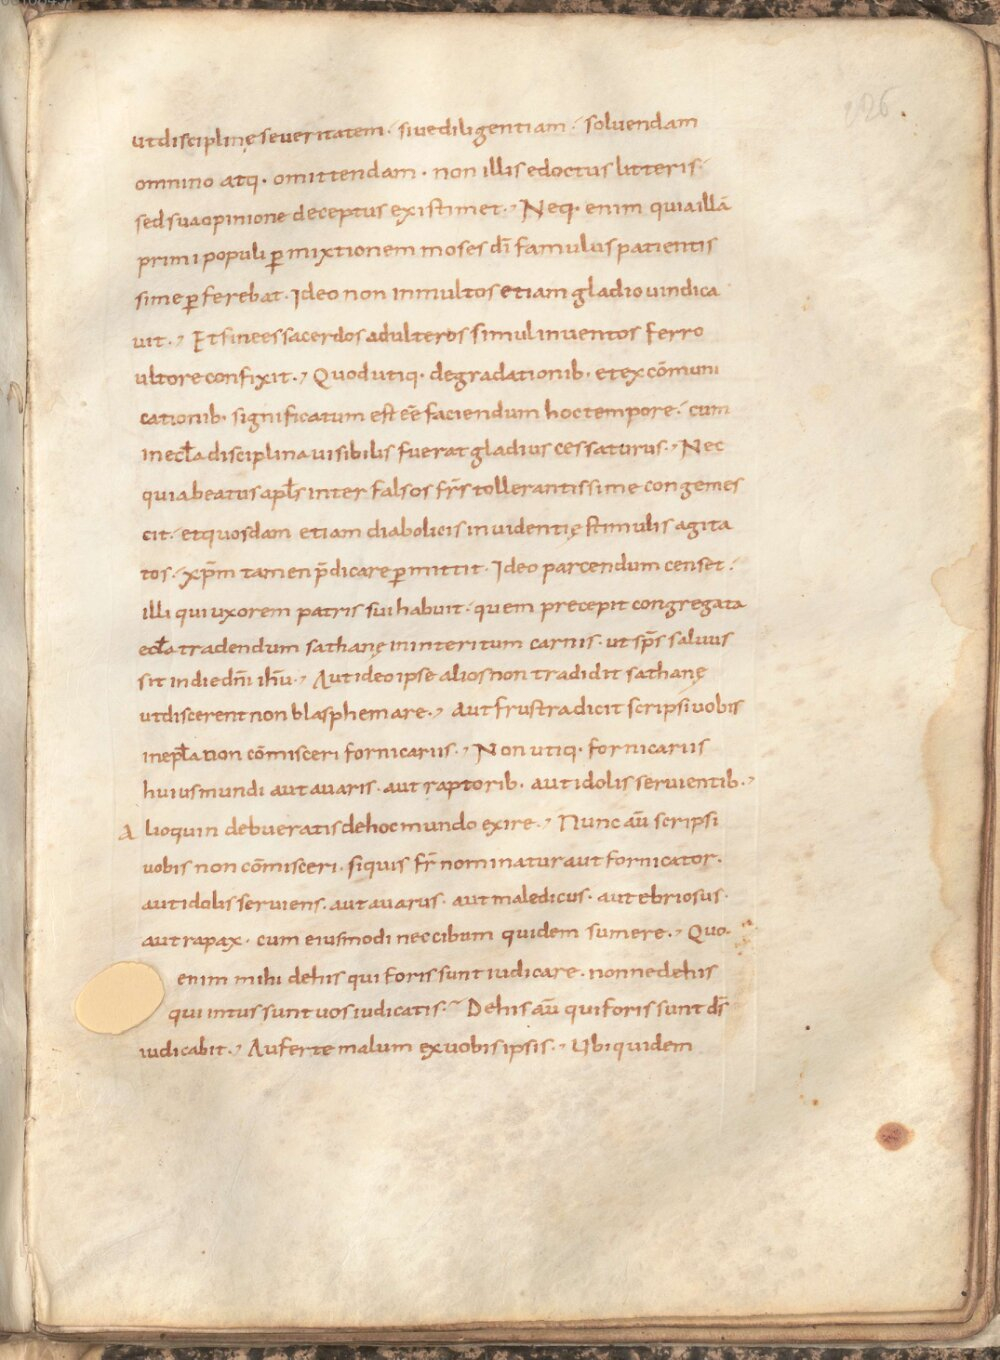 126
ut disciplinę seueritatem· siue diligentiam· soluendam
omnino atq· omittendam· non illis edoctus litteris·
sed sua opinione deceptus existimet· Neq· enim quia illā
primi populi ꝑmixtionem moses dī famulus patientis
sime ꝑferebat· Ideo non in multos etiam gladio uindica
uit· Et finees sacerdos adulteros simul inuentos ferro
ultore confixit· Quod utiq· degradationib· et excōmuni
cationib· significatum est eē faciendum hoc tempore· cum
in eccƚa disciplina uisibilis fuerat gladius cessaturus· Nec
quia beatus apƚs inter falsos frs̄ tollerantissime congemes
cit· et quosdam etiam diabolicis inuidentię stimulis agita
tos· xp̄m tamen p̄dicare ꝑmittit· Ideo parcendum censet·
illi qui uxorem patris sui habuit· quem precepit congregata
eccƚa tradendum sathanę in interitum carnis· ut sps̄ saluus
sit in die dn̄i ihū· Aut ideo ipse alios non tradidit sathanę
ut discerent non blasphemare· Aut frustra dicit scripsi uobis
in epƚa non cōmisceri fornicariis· Non utiq· fornicariis
huius mundi aut auaris· aut raptorib· aut idolis seruientib·
Alioquin debueratis de hoc mundo exire· Nunc aū scripsi
uobis non cōmisceri· si quis fr̄ nominatur aut fornicator·
aut idolis seruiens· aut auarus· aut maledicus· aut ebriosus·
aut rapax· cum eiusmodi nec cibum quidem sumere· Quo·
enim mihi de his qui foris sunt iudicare· nonne de his
qui intus sunt uos iudicatis· De his aū qui foris sunt ds̄
iudicabit· Auferte malum ex uobis ipsis· Ubi quidem